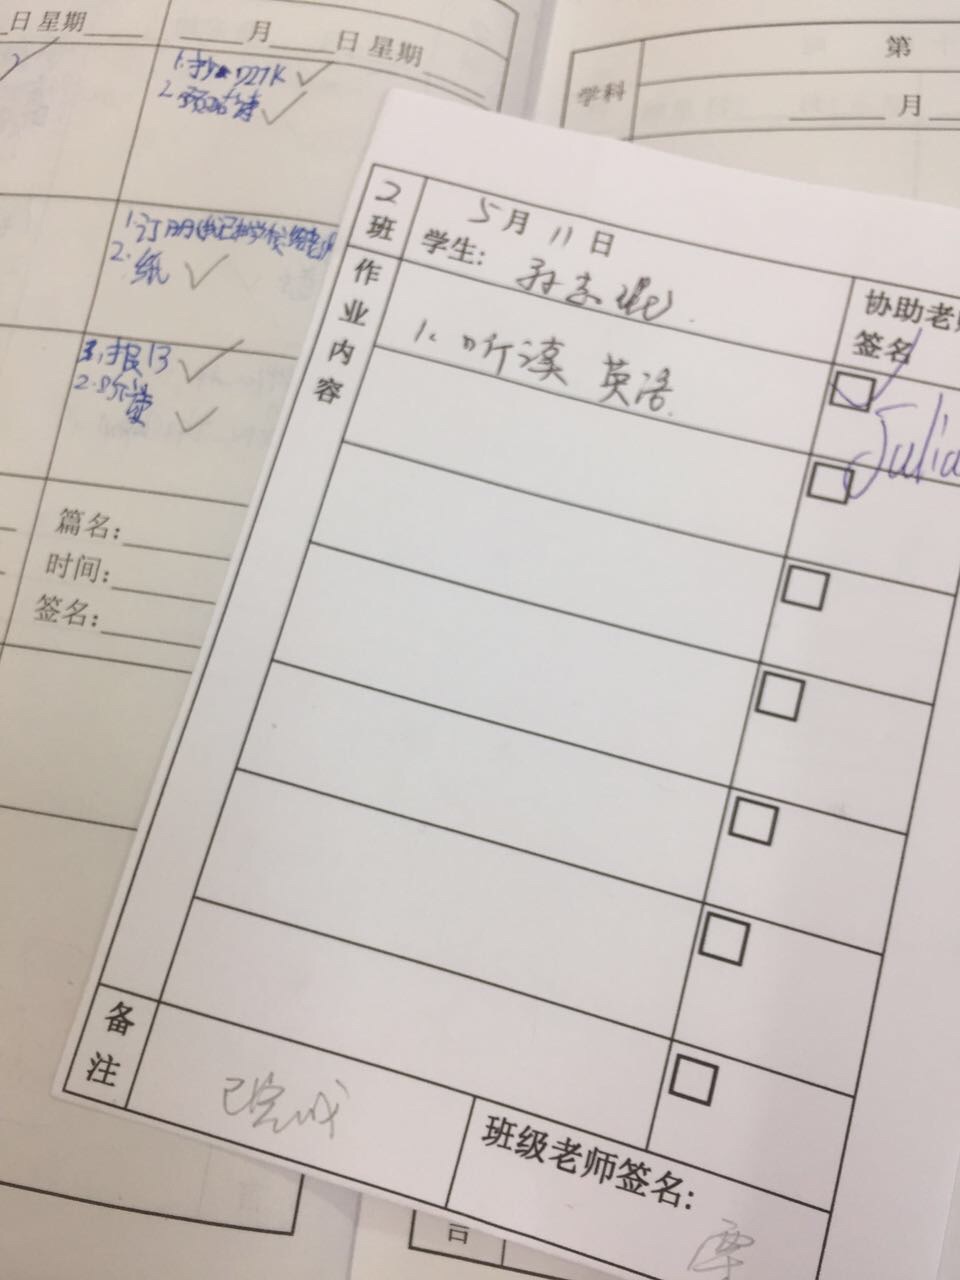 日 星期
月 日 星期
1.
2. 预习
1. 订
2. 纸
1. 报 13
2. 听读
篇名:
时间:
签名:
第
学科
月
2 班
5 月 11 日
学生: 孙
协助老师
签名
作业内容
1. 听读 英语
Julia
备注
已完成
班级老师签名: